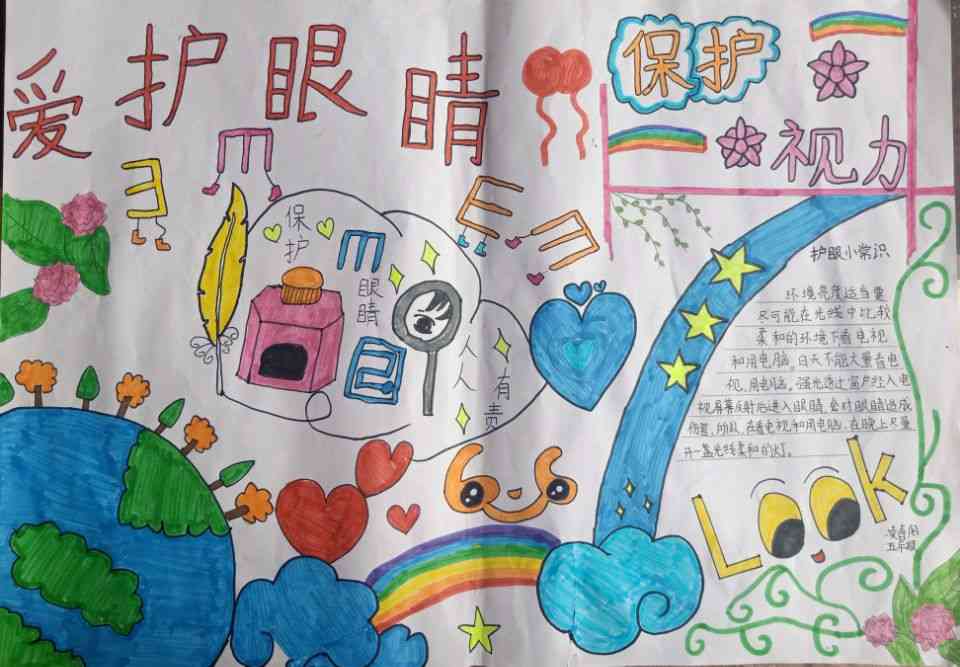 爱护眼睛
保护
视力
保护
眼睛
人人
有责
护眼小常识
环境亮度适当要
尽可能在光线中比较
柔和的环境下看电视
和用电脑。白天不能大量看电
视,用电脑。强光透过窗户经入电
视屏幕反射后进入眼睛,会对眼睛造成
伤害,所以,在看电视和用电脑,在晚上尽量
开一盏光线柔和的灯。
Look
五年级